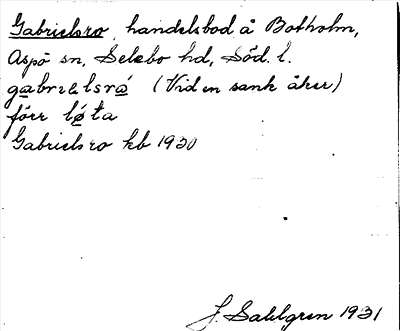 Gabrielsro, handelsbod å Botholm,
Aspö sn, Selebo hd, Söd. l.
gabrɛlsró (Vid en sank åker)
förr lóta
Gabrielsro kb 1930
J. Sahlgren 1931